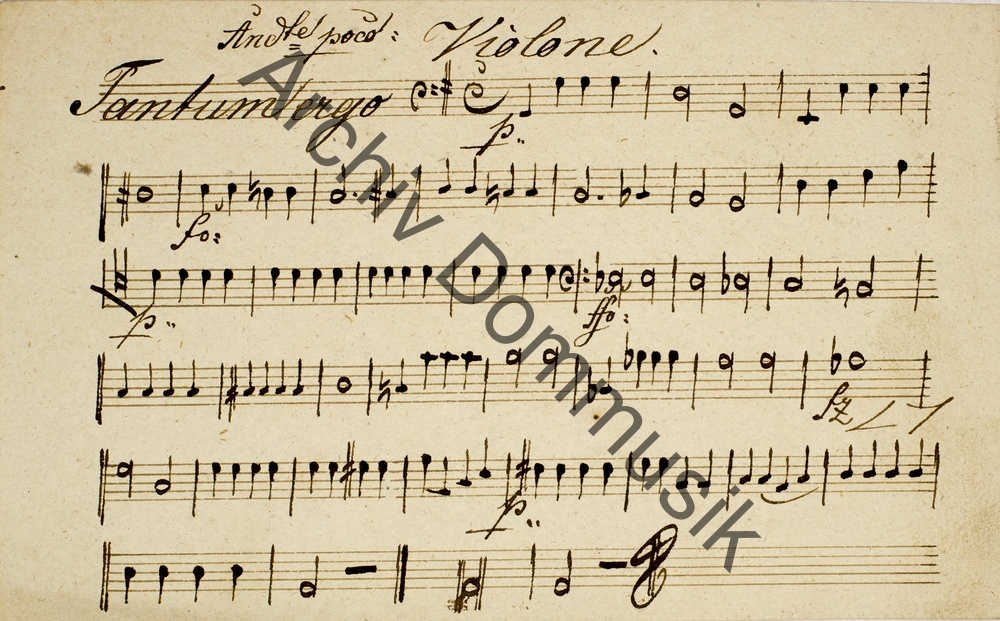 Andte poco: Violone.
Tantum ergo
p..
fo:
p..
ffo:
fz
p..
Archiv Dommusik